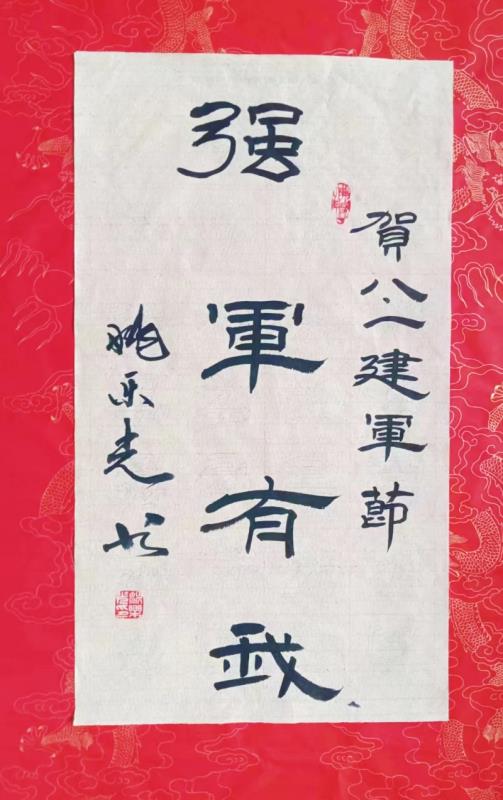 賀八一建軍節
强軍有我
姚乐光书